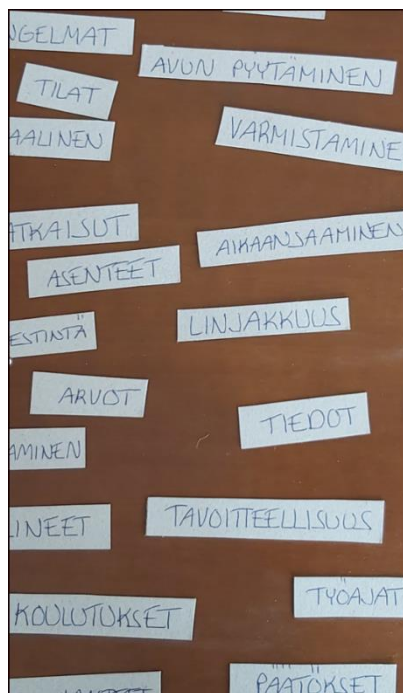 NGELMAT
AVUN PYYTÄMINEN
TILAT
AALINEN
VARMISTAMINE
ATKAISUT
AIKAANSAAMINEN
ASENTEET
ESTINTÄ
LINJAKKUUS
ARVOT
TIEDOT
AMINEN
INEET
TAVOITTEELLISUUS
TYÖAJAT
KOULUTUKSET
PÄÄTÖKSET